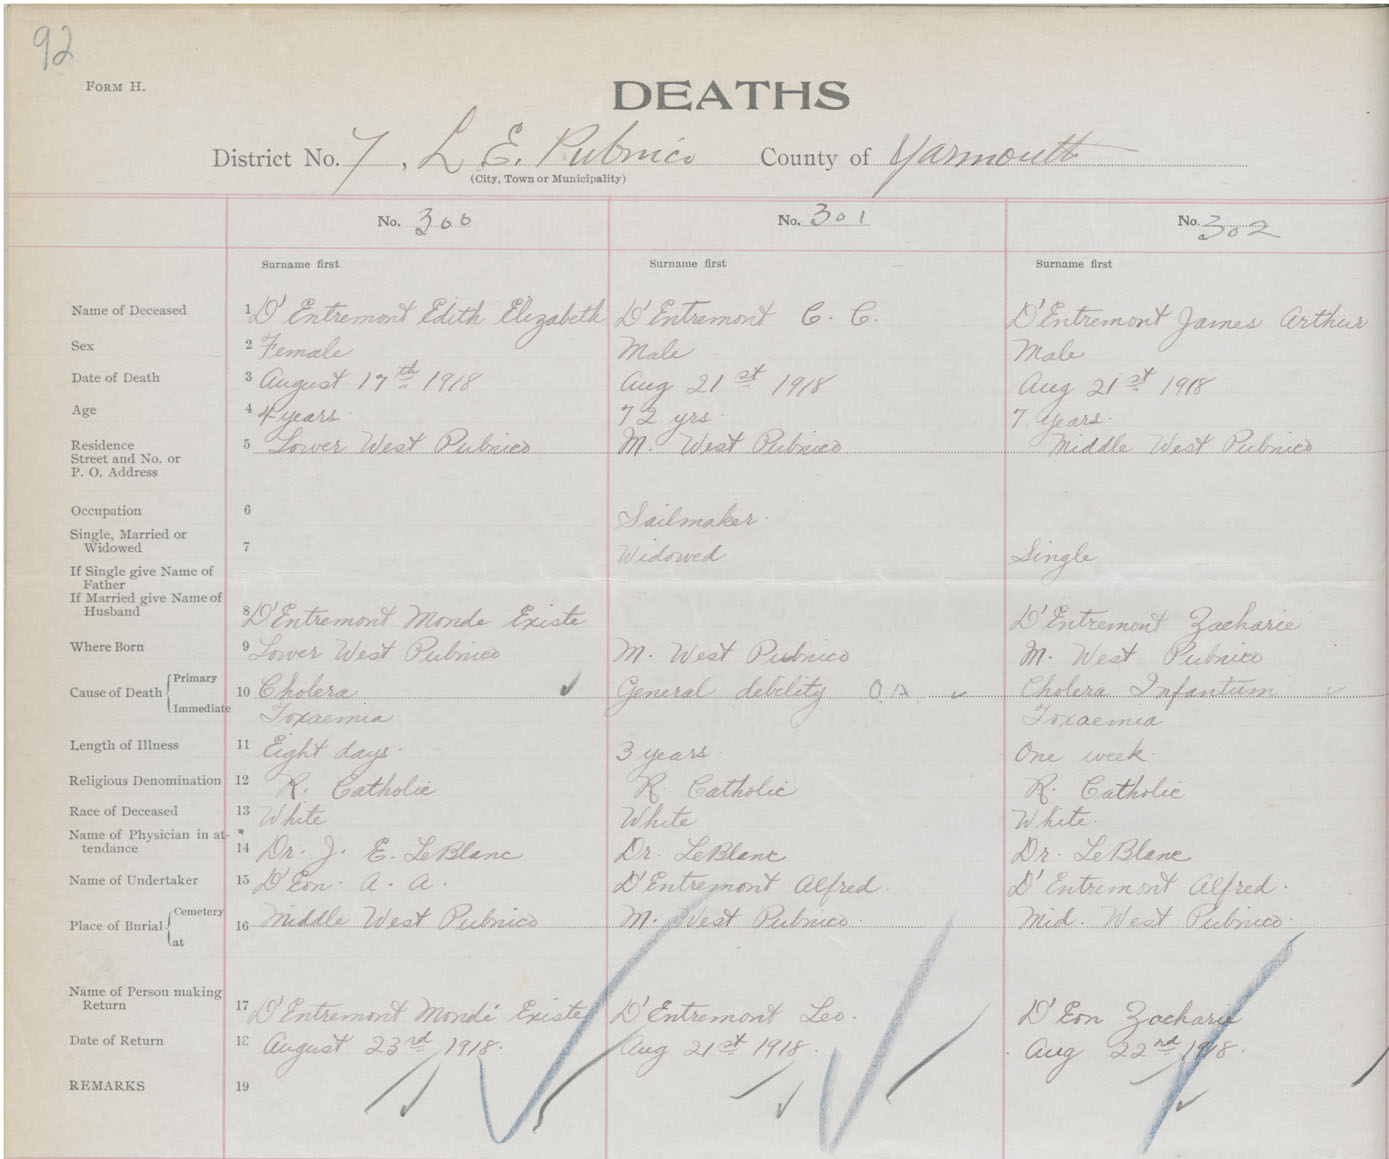 92
FORM H.
DEATHS
District No. 7, L E. Pubnico County of Yarmouth
(City, Town or Municipality)
No. 300 No. 301 No. 302
Surname first Surname first Surname first
Name of Deceased 1 D'Entremont Edith Elizabeth D'Entremont C. C. D'Entremont James Arthur
Sex 2 Female Male Male
Date of Death 3 August 17th 1918 Aug 21st 1918 Aug 21st 1918
Age 4 4 years. 72 yrs. 7 years.
Residence 5 Lower West Pubnico M. West Pubnico Middle West Pubnico
Street and No. or
P. O. Address
Occupation 6 Sailmaker.
Single, Married or
Widowed 7 Widowed Single
If Single give Name of
Father
If Married give Name of
Husband 8 D'Entremont Monde Existe D'Entremont Zacharie
Where Born 9 Lower West Pubnico M. West Pubnico M. West Pubnico
Cause of Death Primary 10 Cholera General debelity O.A. Cholera Infantum
Immediate Toxaemia Toxaemia
Length of Illness 11 Eight days. 3 years. One week.
Religious Denomination 12 R. Catholic R. Catholic R. Catholic
Race of Deceased 13 White White White.
Name of Physician in at-
tendance 14 Dr. J. E. LeBlanc Dr. LeBlanc Dr. LeBlanc
Name of Undertaker 15 D'Eon. A. A. D'Entremont Alfred. D'Entremont Alfred.
Place of Bnrial Cemetery at 16 Middle West Pubnico M. West Pubnico Mid. West Pubnico.
Name of Person making
Return 17 D'Entremont Mondé Existe D'Entremont Leo. D'Eon Zacharie
Date of Return 18 August 23rd 1918. Aug 21st 1918. Aug 22nd 1918.
REMARKS 19